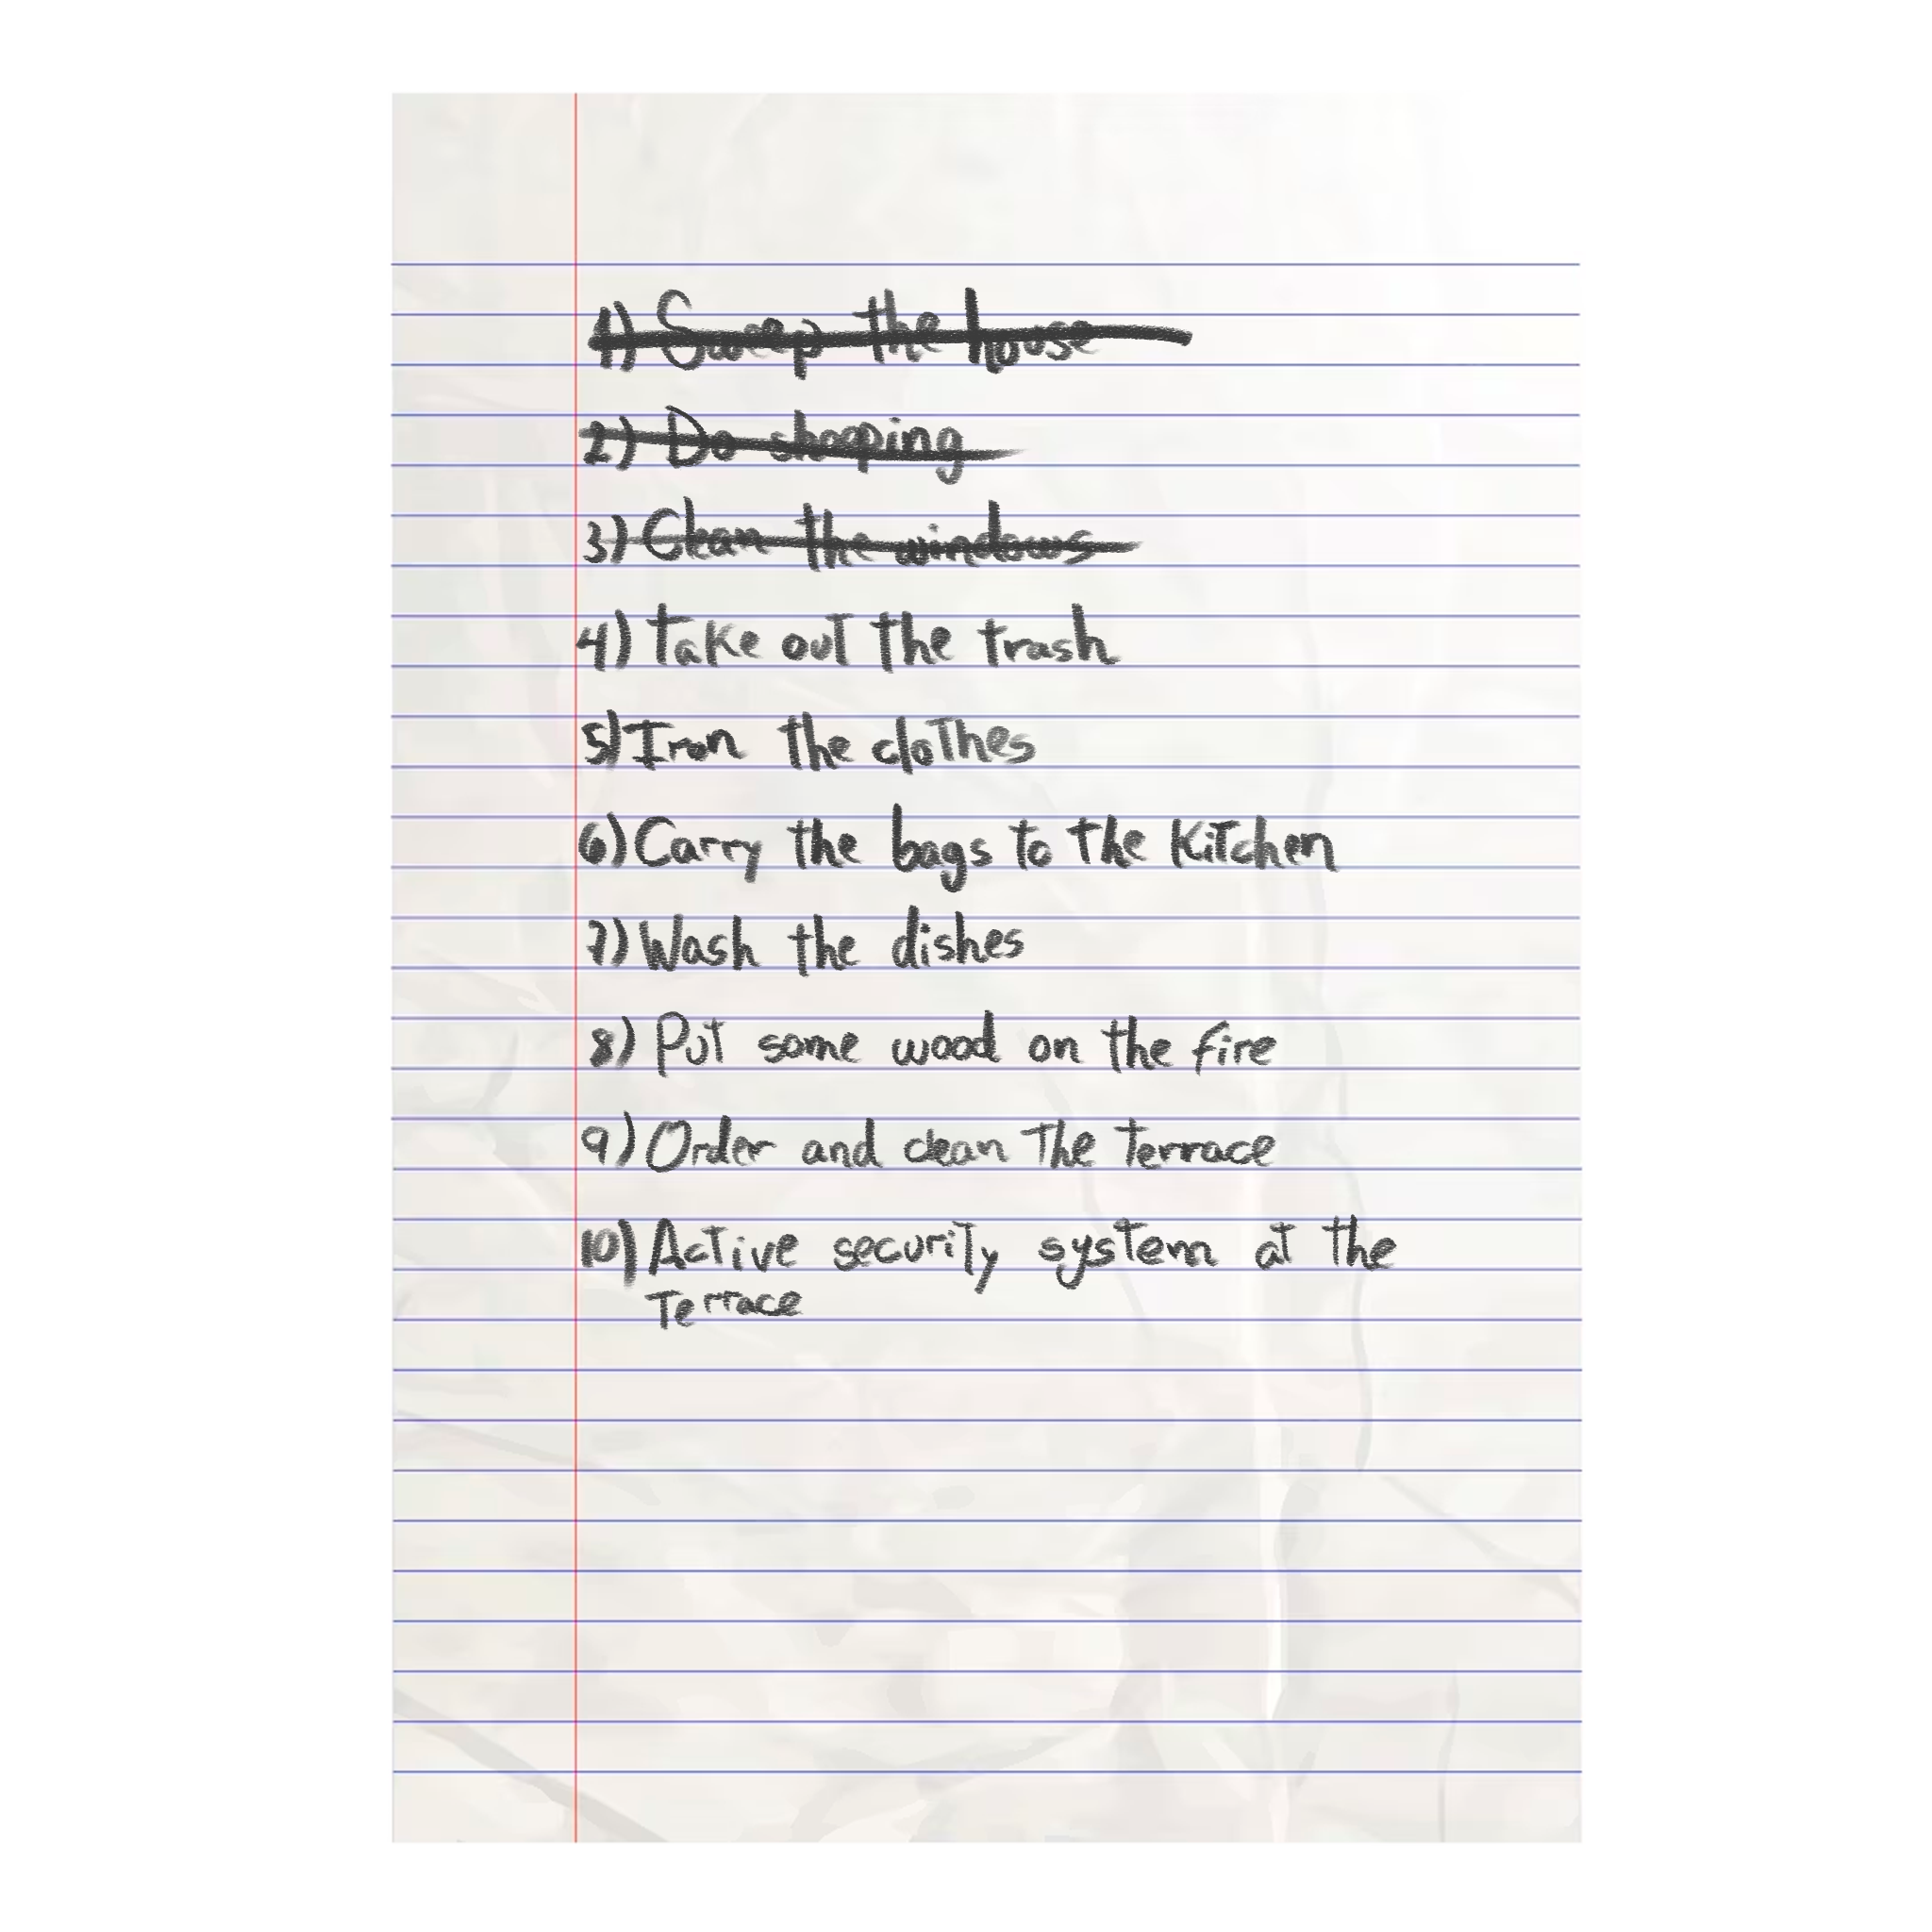 1) Sweep the house
2) Do shopping
3) Clean the windows
4) take out the trash
5) Iron the clothes
6) Carry the bags to the Kitchen
7) Wash the dishes
8) Put some wood on the fire
9) Order and clean The terrace
10) Active security system at the
Terrace